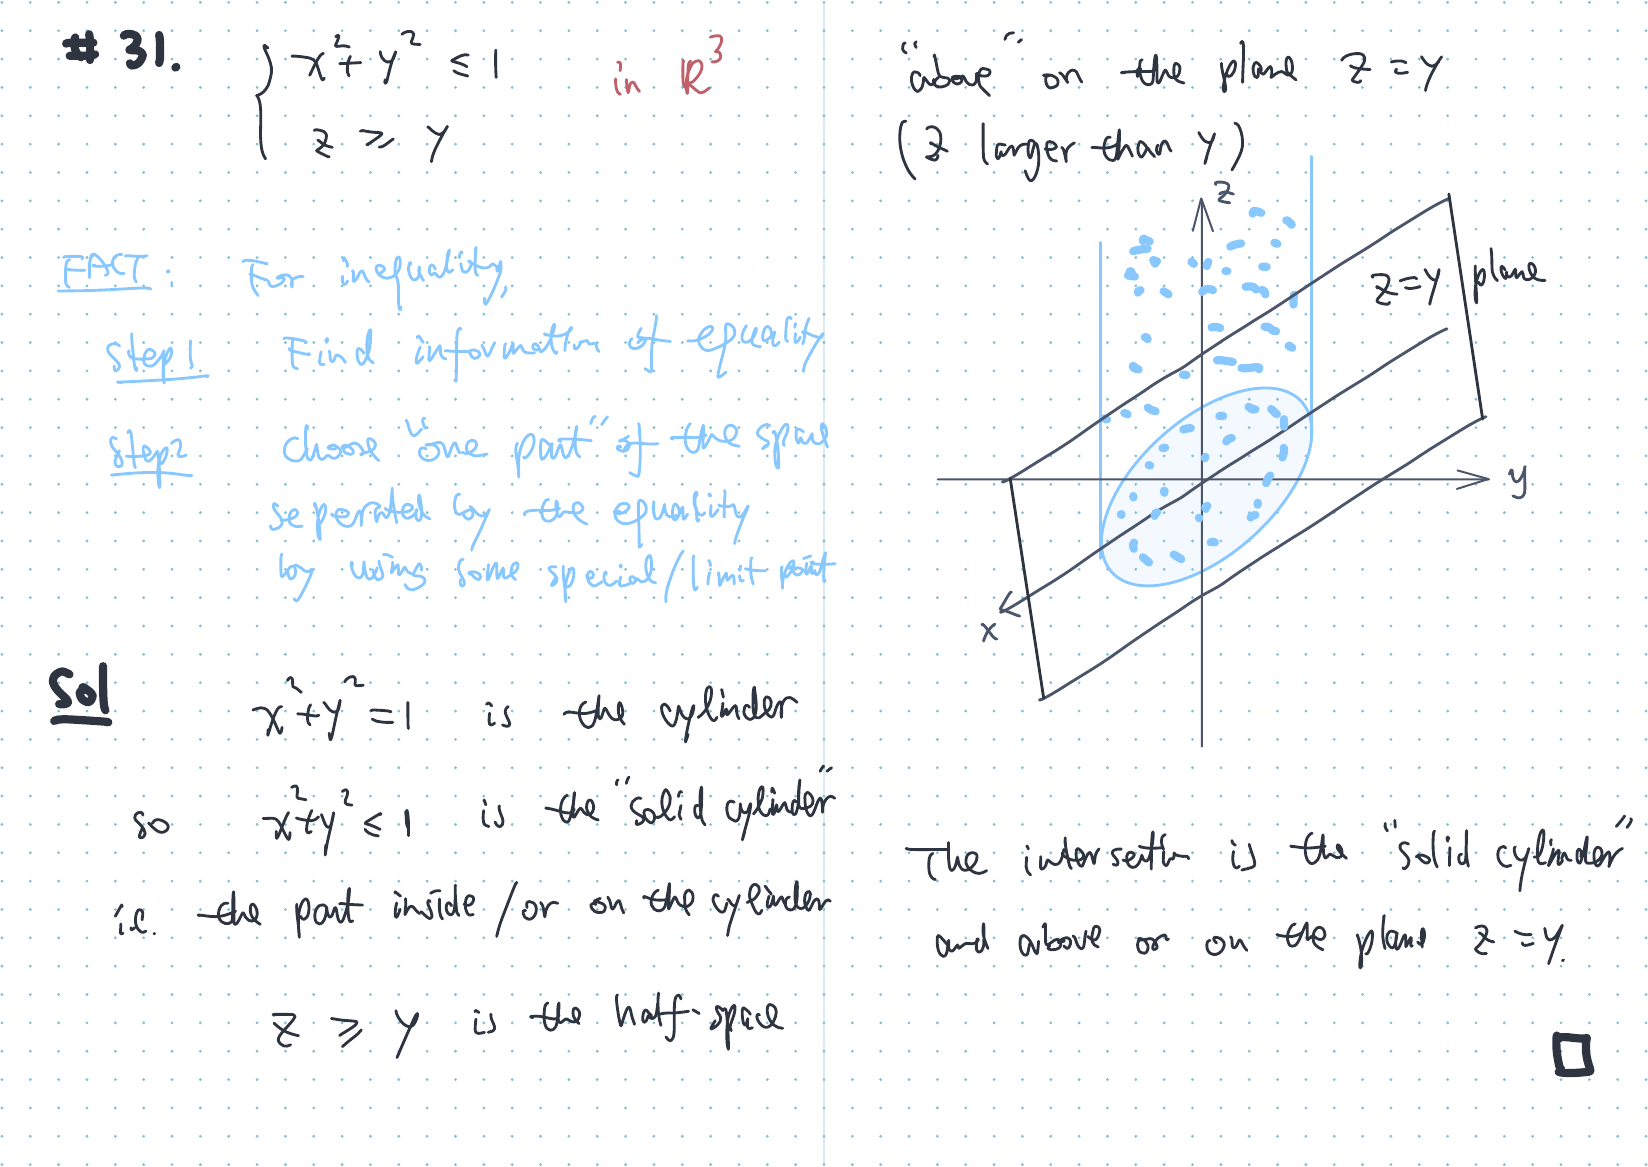 # 31. x² + y² ≤ 1 in ℝ³
z ≥ y
FACT: For inequality,
Step 1. Find information of equality
Step 2 Choose "one part" of the space
seperated by the equality
by using some special/limit point
Sol x² + y² = 1 is the cylinder
so x² + y² ≤ 1 is the "solid cylinder"
i.e. the part inside/or on the cylinder
z ≥ y is the half-space
"above" on the plane z = y
(z larger than y)
z
z = y plane
y
x
The intersectin is the "solid cylinder"
and above or on the plane z = y.